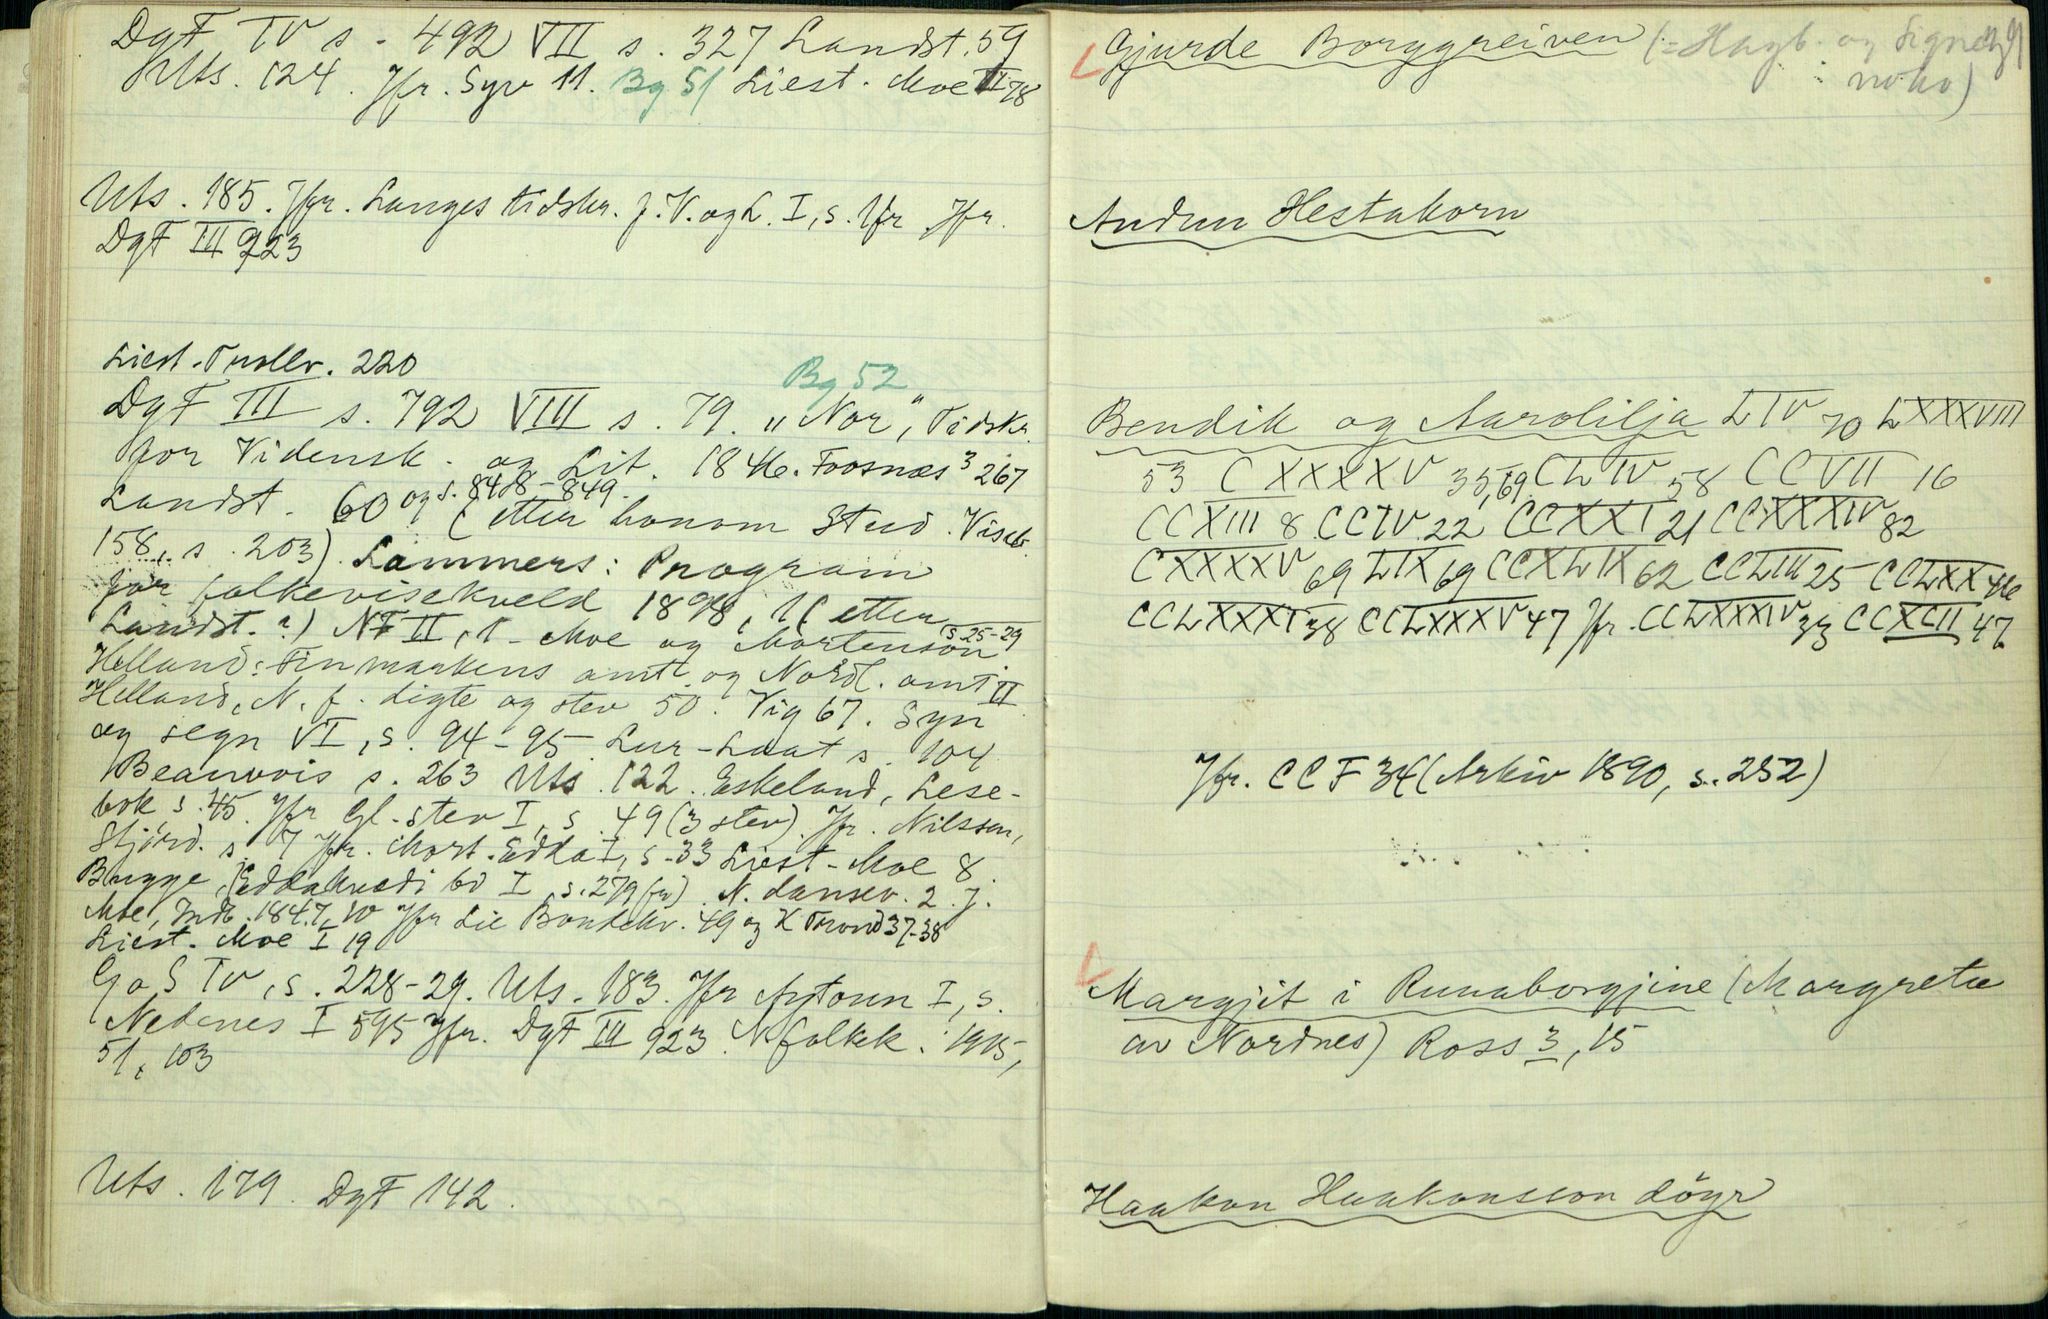 DgF IV s. 492 VII s. 327 Landst. 59
Uts. 124. Jfr. Syv 11. Bg 51 Liest. Moe II 78
Uts. 185. Jfr. Langes tidskr. f. V. og L. I, s. Jfr.
DgF III 923
Liest. 220
Bg 52
DgF III s. 792 VIII s. 79. „Nor", Tidskr.
for Vidensk. og Lit. 1846. Foosnæs 3 267
Landst. 60 og s. 848-849.
(etter honom Stud. Viseb.
158, s. 203) Lammers: Program
for folkevisekveld 1898, 1 (etter
Landst.?) NF II, 1 - Moe og Mortenson s. 25-29
Helland: Finmarkens amt og Nordl. amt II
Helland, N. f. digte og stev 50. Vig 67. Syn
og segn VI, s. 94-95 Lur-Laat s. 104
Beauvois s. 263 Uts. 122. Eskeland, Lese-
bok s. 45. Jfr Gl. stev I, s. 49 (3 stev). Jfr. Nilssen,
Stjørd. s. 7 Jfr. Mort. Edda I, s. 33 Liest-Moe 8.
Bugge, Eddakvædi bd I, s. 279 N. dansev. 2 J.
Moe, Indb. 1847, Jfr Lie Bondekv. 49 og K Trond 37-38
Liest. Moe I 19
G o S IV, s. 228-29. Uts. 183. Jfr Aytoun I, s.
Nedenes I 595 Jfr. DgF III 923. N folkek. 1915,
51, 103
Uts. 179. DgF 142.
Gjurde Borggreiven (= Hagb. og Signe
noko)
Andun Hestakorn
Bendik og Aarolilja LIV 70 LXXXVIII
53 CXXXXV 35, 69 CLIV 58 CCVII 16
CCXIII 8 CCIV 22 CCXXI 21 CCXXXIV 82
CXXXXV 69 LIX 69 CCXLIX 62 CCLIII 25 CCLXX 46
CCLXXXI 38 CCLXXXV 47 Jfr. CCLXXXIV 33 CCXCII 47.
Jfr. CCF 34 (Arkiv 1890, s. 252)
Margjit i Runaborgjine (Margreta
av Nordnes) Ross 3, 15
Haakon Haakonsson døyr